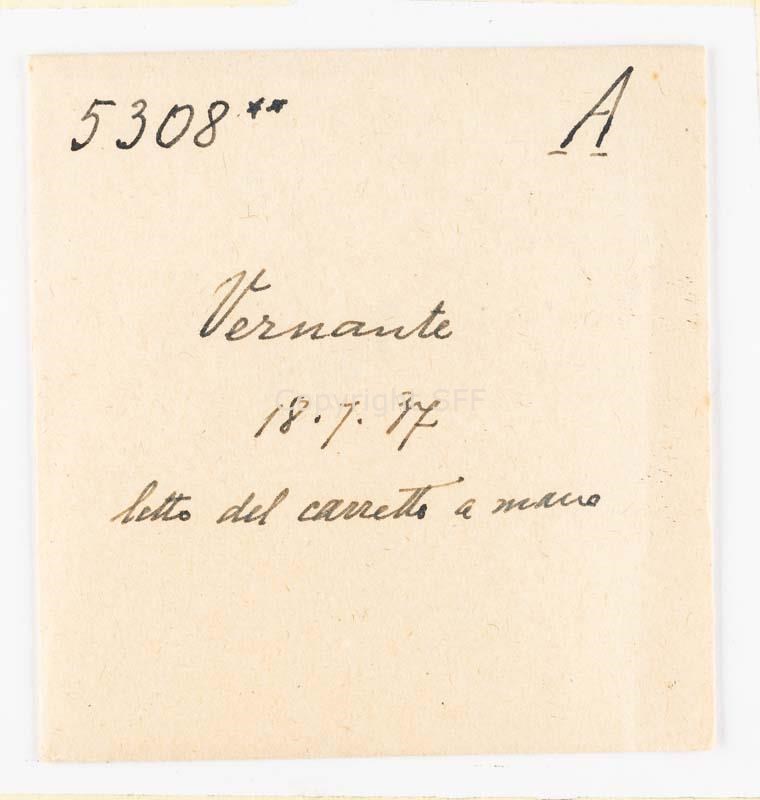 5308** A
Vernante
18.7.37
letto del carretto a mano
Copyright SFF